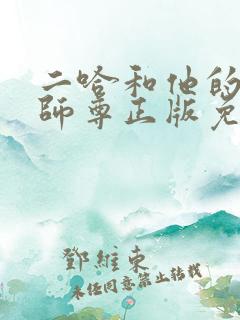 二哈和他的
師尊正版免
鄧維東
未经同意禁止转载